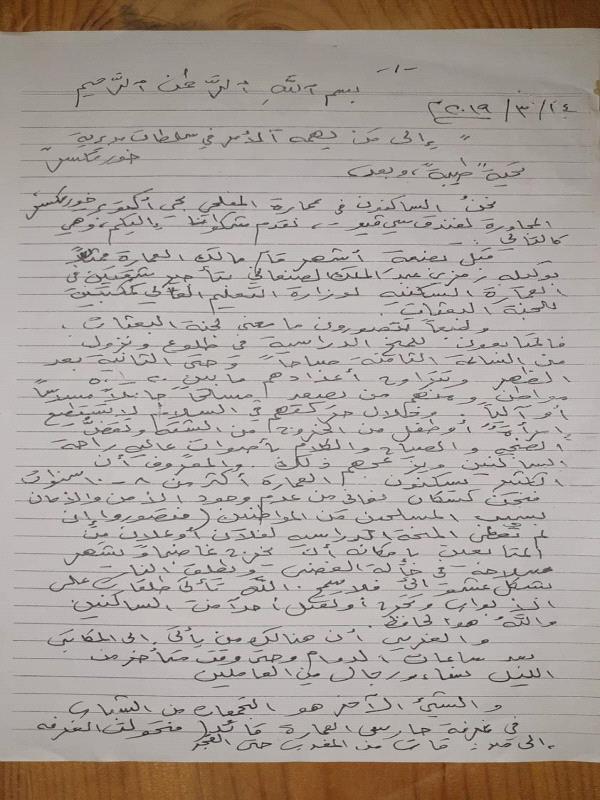 -١-
بسم اللَّهِ الرَّحمن الرَّحيم
٢٤/٣/٢٠١٩م
إلى من يهمه الأمر في سلطات مديرية
خورمكسر
تحية "طيبة"، وبعد،
نحنُ الساكنون في عمارة المفلحي بحي أكتوبر خورمكسر
المجاورة لفندق سي فيو، نقدم شكوانا إليكم، وهي
كالتالي:
قبل بضعة أشهر قام مالك العمارة
بوكيله رمزي عبد الملك الصنعاني بتأجير شقتين في
العمارة السكنية لوزارة التعليم العالي كمكتبين
للجنة البعثات.
وطبعاً تتصورون ما معنى لجنة البعثات.
فالمتابعون للمنح الدراسية في طلوع ونزول
من الساعة الثامنة صباحاً وحتى الثانية بعد
الظهر وتتراوح أعدادهم ما بين
مواطن، ومنهم من يصعد مسلحاً حاملاً مسدساً
أو آلياً. وخلال حركتهم في السلالم لا تستطيع
إمرأة أو طفل من الخروج من الشقة وبفضل
الضجيج والصياح والكلام بأصوات عالية راحة
الساكنين ويزعجهم ذلك. والمعروف أن
الكثير يسكنون العمارة أكثر من ٨-١٠ سنوات
فنحن كسكان نعاني من عدم وجود الأمن والأمان
بسبب المسلحين من المواطنين (فتصوروا إن
لم تُعطى المنحة الدراسية لفلان أو علان من
المتابعين بإمكانه أن يخرج غاضباً و يشهر
سلاحه في حالة الغضب ويطلق النار
بشكل عشوائي فلا سمح الله تأتي طلقات على
الأبواب وتجرح أو تقتل أحداً من الساكنين
واللَّه هو الحافظ.
والغريب أن هنالك من يأتي إلى المكاتب
بعد ساعات الدوام وحتى وقت متأخر من
الليل نساء ورجال من العاملين
والشيئ الآخر هو التجمعات من الشباب
في غرفة حارس العمارة فتحولت الغرفه
إلى من المغرب حتى الفجر